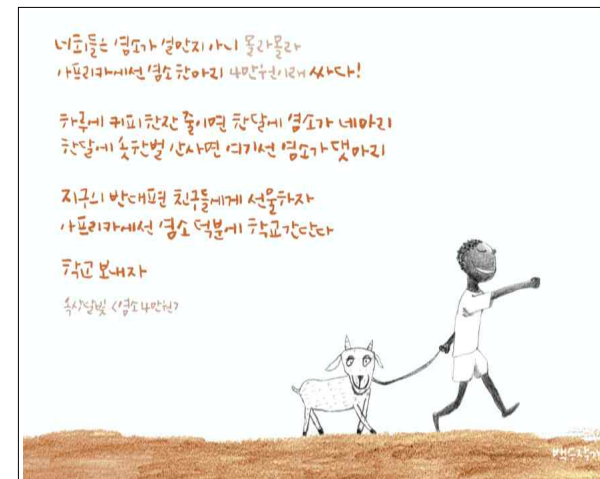 너희들은 염소가 얼만지 아니 몰라몰라
아프리카에선 염소 한마리 4만원이래 싸다!
하루에 커피한잔 줄이면 한달에 염소가 네마리
한달에 옷한벌 안사면 여기선 염소가 댓마리
지구의 반대편 친구들에게 선물하자
아프리카에선 염소 덕분에 학교간단다
학교 보내자
옥상달빛 <염소 4만원>
백수작가